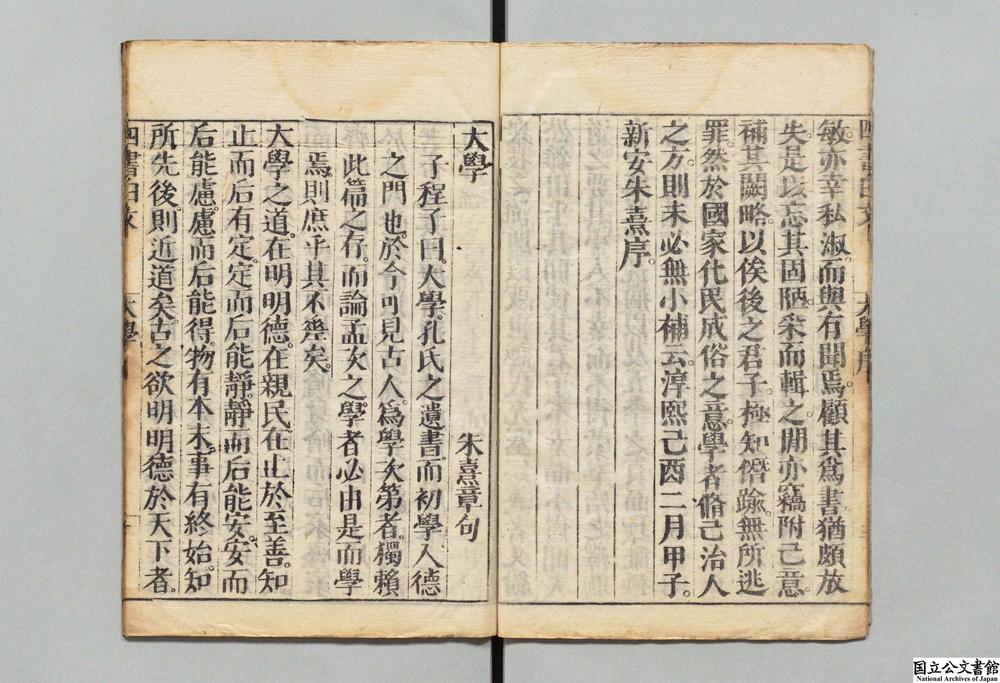 敏亦幸私淑而與有聞焉顧其爲書猶頗放
失是以忘其固陋采而輯之閒亦竊附己意
補其闕略以俟後之君子極知僭踰無所逃
罪然於國家化民成俗之意學者脩己治人
之方則未必無小補云淳熙己酉二月甲子
新安朱熹序
大學
朱熹章句
子程子曰大學孔氏之遺書而初學入德
之門也於今可見古人爲學次第者獨賴
此篇之存而論孟次之學者必由是而學
焉則庶乎其不差矣
大學之道在明明德在親民在止於至善知
止而后有定定而后能靜靜而后能安安而
后能慮慮而后能得物有本末事有終始知
所先後則近道矣古之欲明明德於天下者
四書白文
大學
国立公文書館
National Archives of Japan